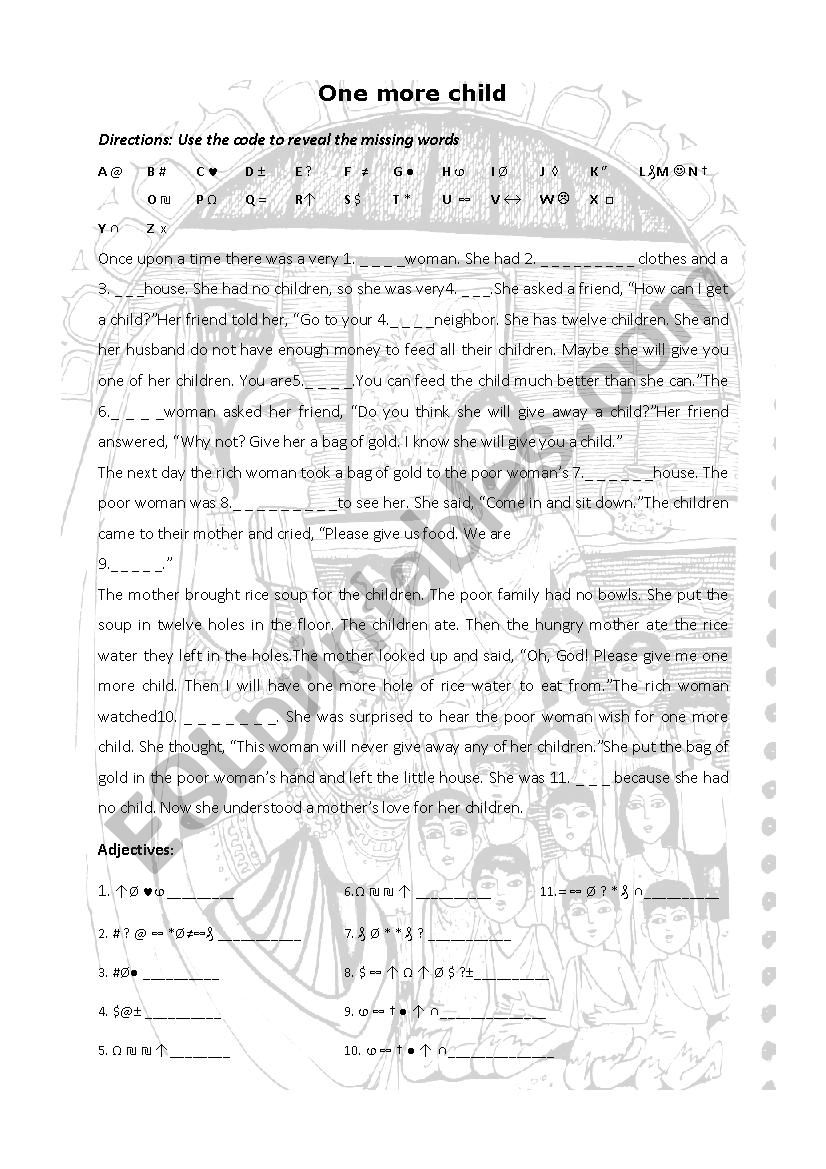 One more child
Directions: Use the code to reveal the missing words
A @ B # C ♥ D ± E ? F ≠ G ● H ҩ I Ø J ◊ K ʺ L ▔ M ☺ N †
O ₪ P Ω Q = R ↑ S $ T * U ∞ V ↔ W ☹ X □
Y ∩ Z x
Once upon a time there was a very 1. _ _ _ _woman. She had 2. _ _ _ _ _ _ _ _ _ clothes and a
3. _ _ _house. She had no children, so she was very4. _ _ _.She asked a friend, “How can I get
a child?”Her friend told her, “Go to your 4._ _ _ _neighbor. She has twelve children. She and
her husband do not have enough money to feed all their children. Maybe she will give you
one of her children. You are5._ _ _ _.You can feed the child much better than she can.”The
6._ _ _ _woman asked her friend, “Do you think she will give away a child?”Her friend
answered, “Why not? Give her a bag of gold. I know she will give you a child.”
The next day the rich woman took a bag of gold to the poor woman’s 7._ _ _ _ _ _house. The
poor woman was 8._ _ _ _ _ _ _ _ _to see her. She said, “Come in and sit down.”The children
came to their mother and cried, “Please give us food. We are
9._ _ _ _ _.”
The mother brought rice soup for the children. The poor family had no bowls. She put the
soup in twelve holes in the floor. The children ate. Then the hungry mother ate the rice
water they left in the holes.The mother looked up and said, “Oh, God! Please give me one
more child. Then I will have one more hole of rice water to eat from.”The rich woman
watched10. _ _ _ _ _ _ _. She was surprised to hear the poor woman wish for one more
child. She thought, “This woman will never give away any of her children.”She put the bag of
gold in the poor woman’s hand and left the little house. She was 11. _ _ _ because she had
no child. Now she understood a mother’s love for her children.
Adjectives:
1. ↑Ø ♥ҩ_________ 6.Ω ₪ ₪ ↑ __________ 11.= ∞ Ø ? * ▔ ∩__________
2. # ? @ ∞ *Ø≠∞▔ ___________ 7. ▔ Ø * * ▔ ? ___________
3. #Ø● __________ 8. $ ∞ ↑ Ω ↑ Ø $ ?±__________
4. $@± __________ 9. ҩ ∞ † ● ↑ ∩______________
5. Ω ₪ ₪ ↑________ 10. ҩ ∞ † ● ↑ ∩______________
ESLprintables.com